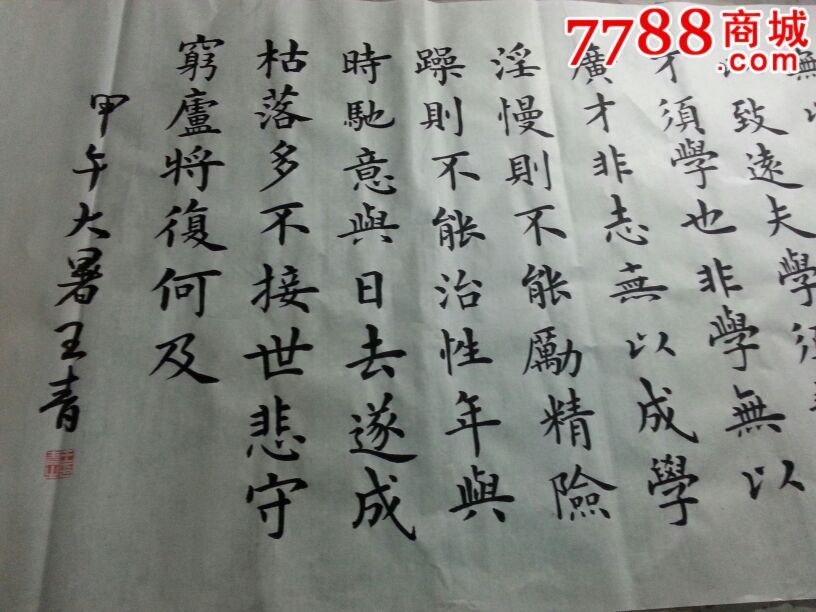 無
致遠夫學須
才須學也非學無以
廣才非志無以成學
淫慢則不能勵精險
躁則不能治性年與
時馳意與日去遂成
枯落多不接世悲守
窮廬將復何及
甲午大暑王青
7788商城
.com